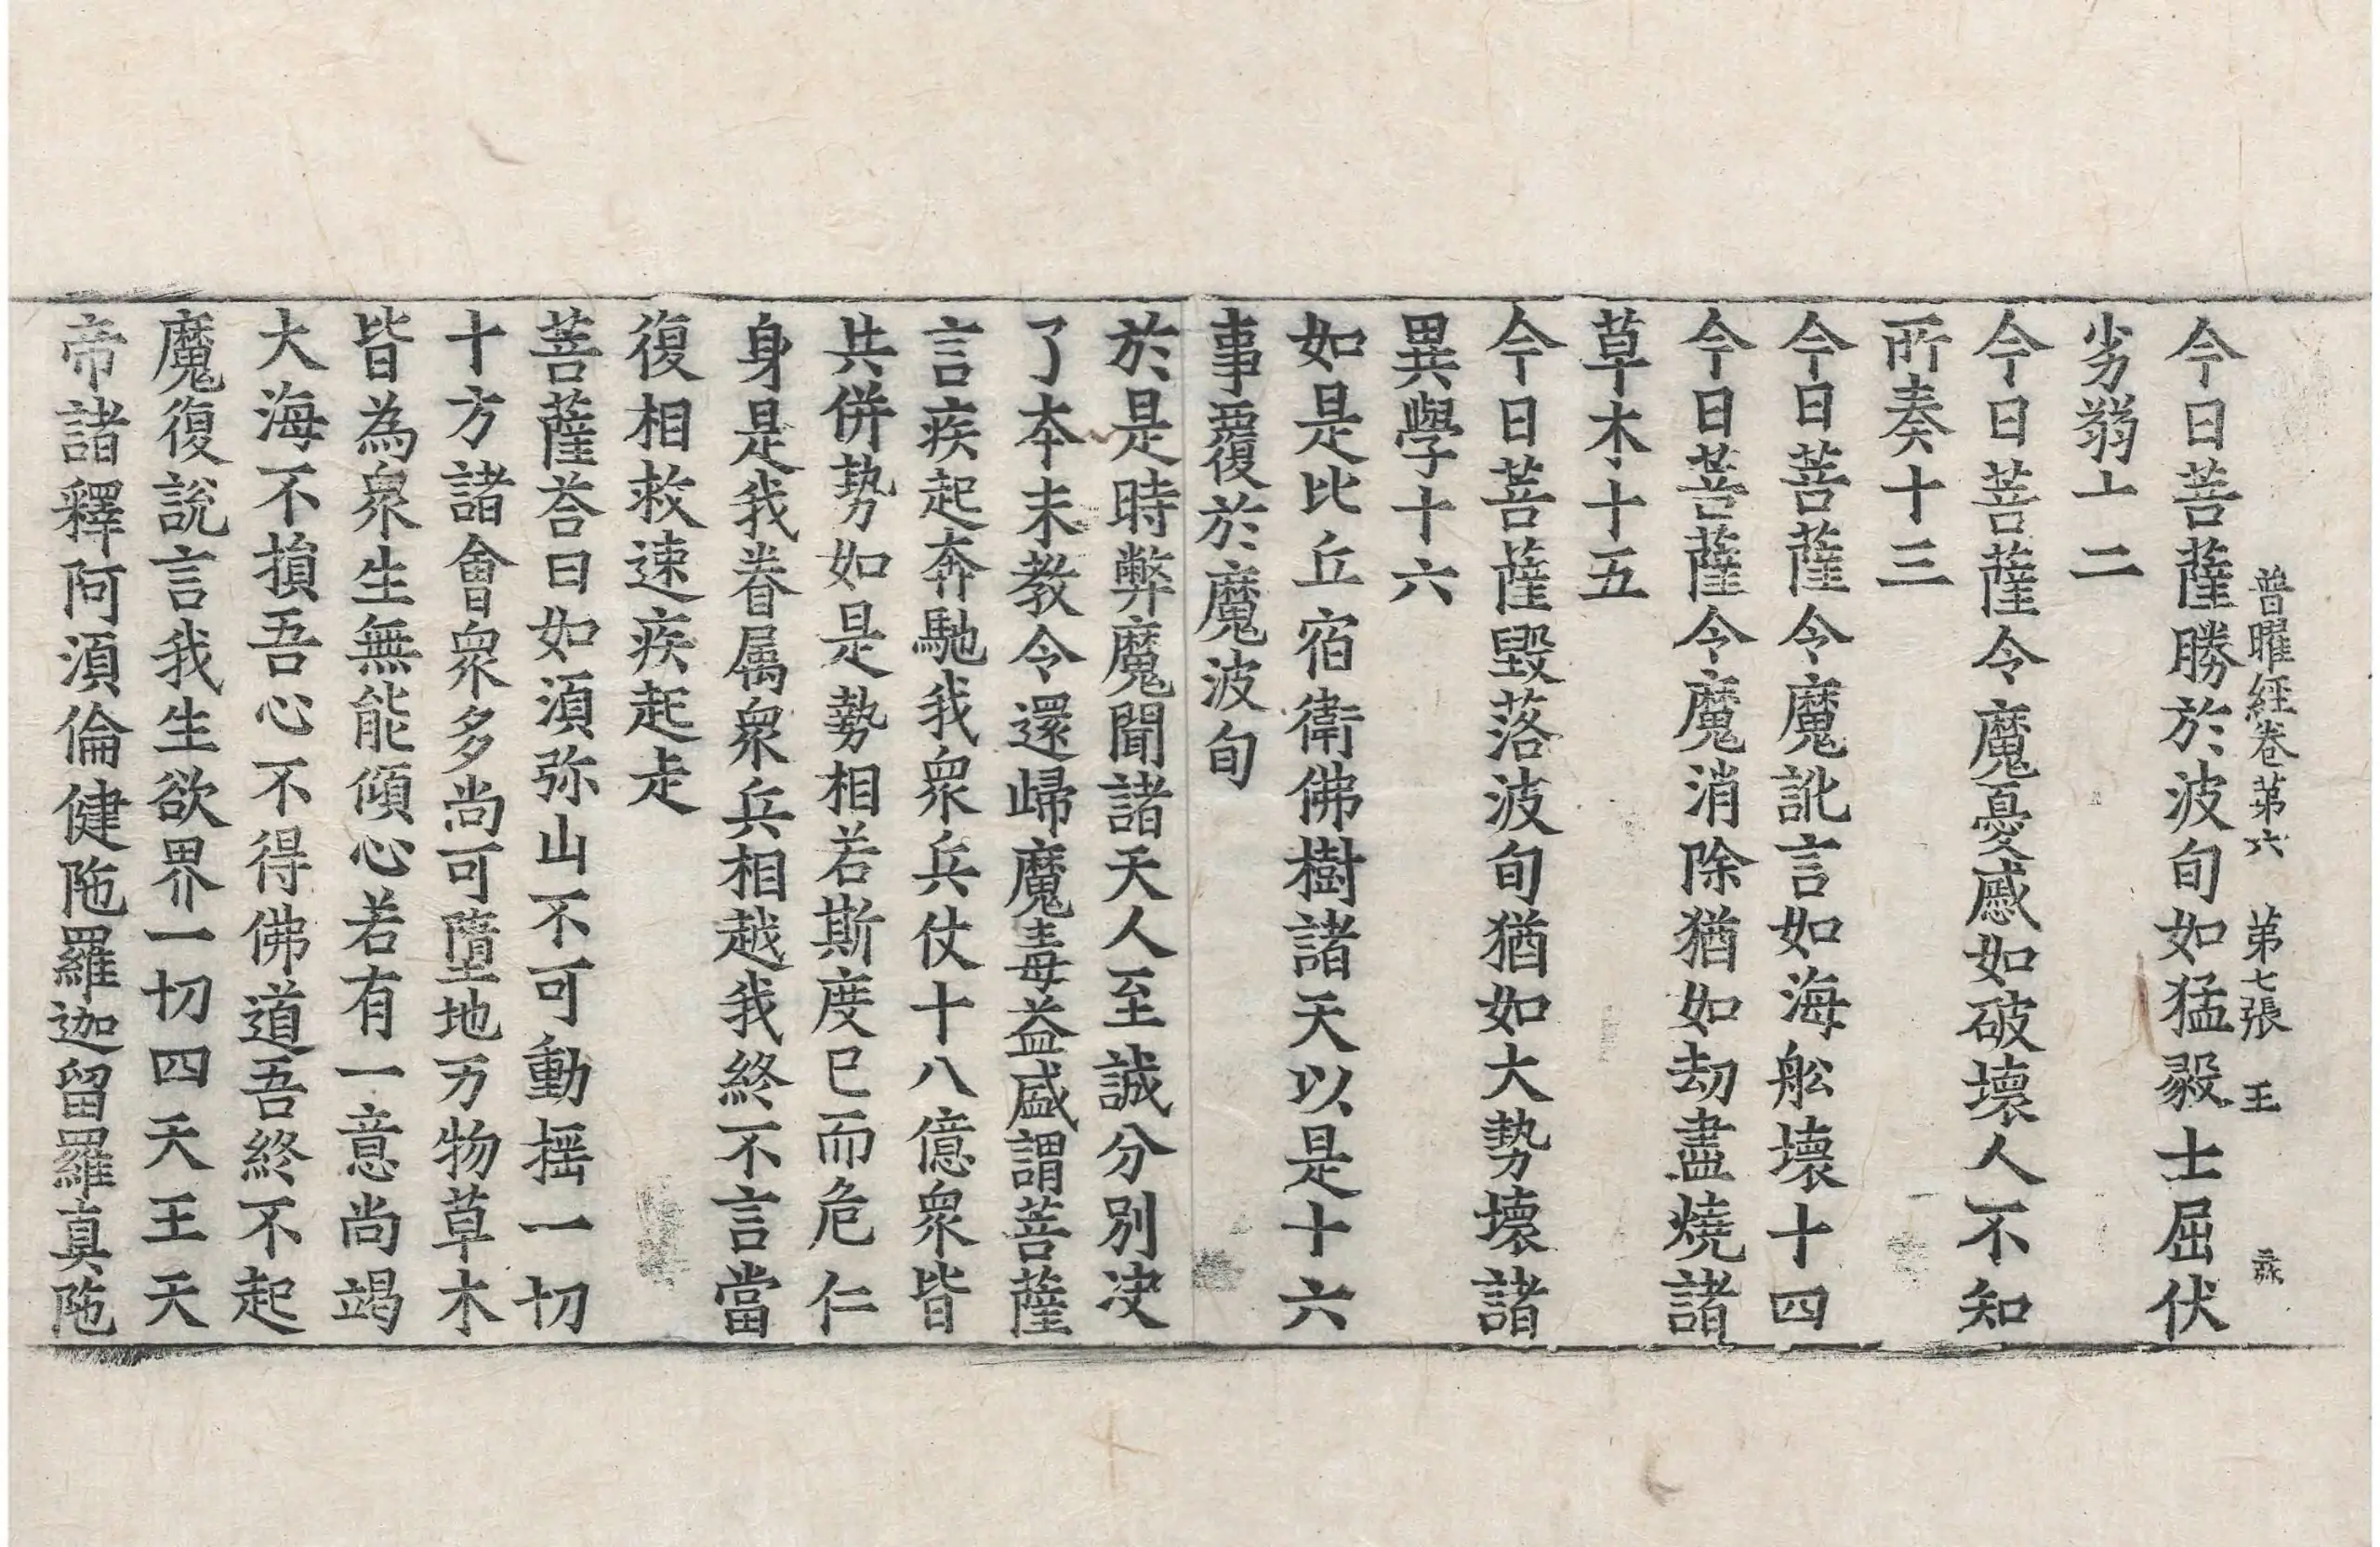 普曜經卷第六 第七張 王
今日菩薩勝於波旬如猛毅士屈伏
劣翁十二
今日菩薩令魔憂慼如破壞人不知
所奏十三
今日菩薩令魔訛言如海舩壞十四
今日菩薩令魔消除猶如劫盡燒諸
草木十五
今日菩薩毀落波旬猶如大勢壞諸
異學十六
如是比丘宿衛佛樹諸天以是十六
事覆於魔波旬
於是時弊魔聞諸天人至誠分別決
了本末教令還歸魔毒益盛謂菩薩
言疾起奔馳我衆兵仗十八億衆皆
共併勢如是勢相若斯度已而危仁
身是我眷属衆兵相越我終不言當
復相救速疾起走
菩薩荅曰如湏弥山不可動揺一切
十方諸會衆多尚可墮地万物草木
皆為衆生無能傾心若有一意尚竭
大海不損吾心不得佛道吾終不起
魔復說言我生欲界一切四天王天
帝諸釋阿湏倫健陁羅迦留羅真陁